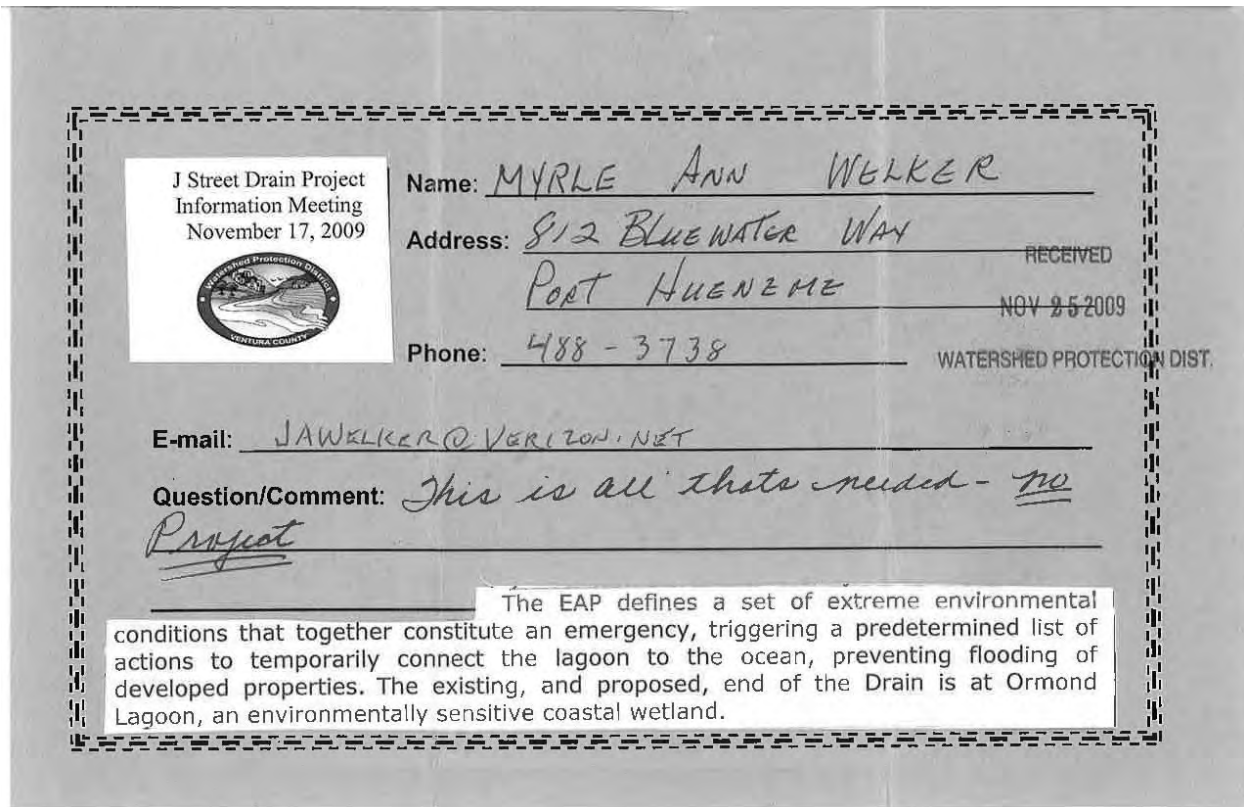 J Street Drain Project
Information Meeting
November 17, 2009
Watershed Protection District
VENTURA COUNTY
Name: MYRLE ANN WELKER
Address: 812 BLUEWATER WAY
PORT HUENEME
RECEIVED
NOV 25 2009
WATERSHED PROTECTION DIST.
Phone: 488-3738
E-mail: JAWELKER@VERIZON.NET
Question/Comment: This is all thats needed - no
Project
The EAP defines a set of extreme environmental
conditions that together constitute an emergency, triggering a predetermined list of
actions to temporarily connect the lagoon to the ocean, preventing flooding of
developed properties. The existing, and proposed, end of the Drain is at Ormond
Lagoon, an environmentally sensitive coastal wetland.